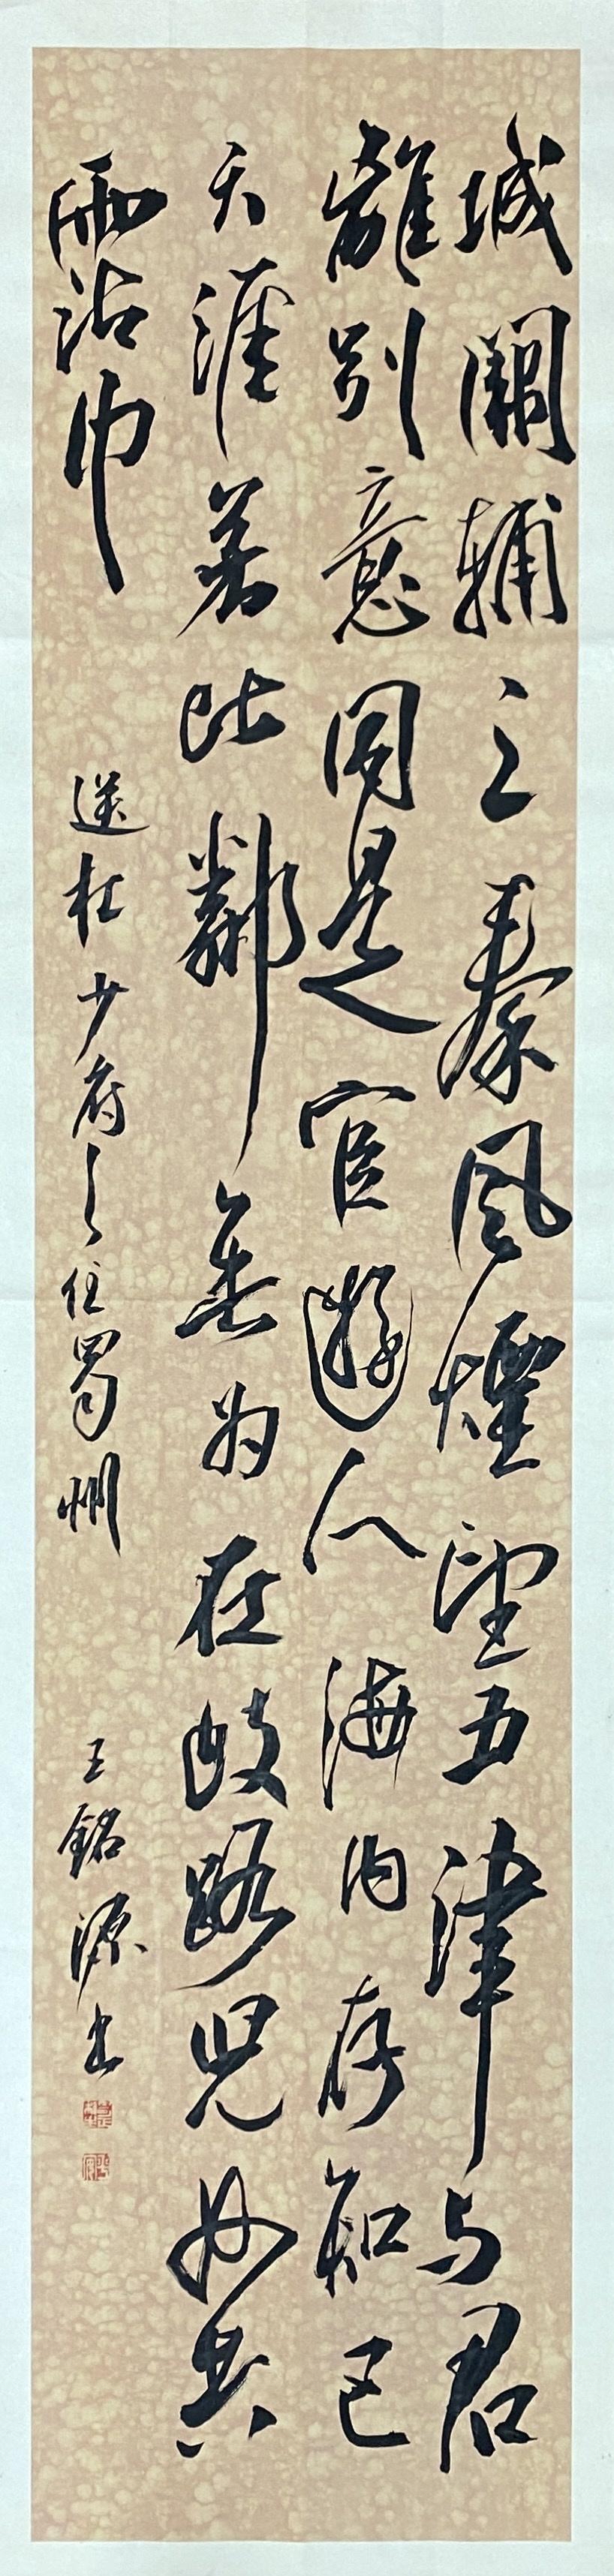 城闕輔三秦風煙望五津与君
離別意同是宦遊人海内存知己
天涯若比鄰無為在歧路児女共
霑巾
送杜少府之任蜀州
王銘源书